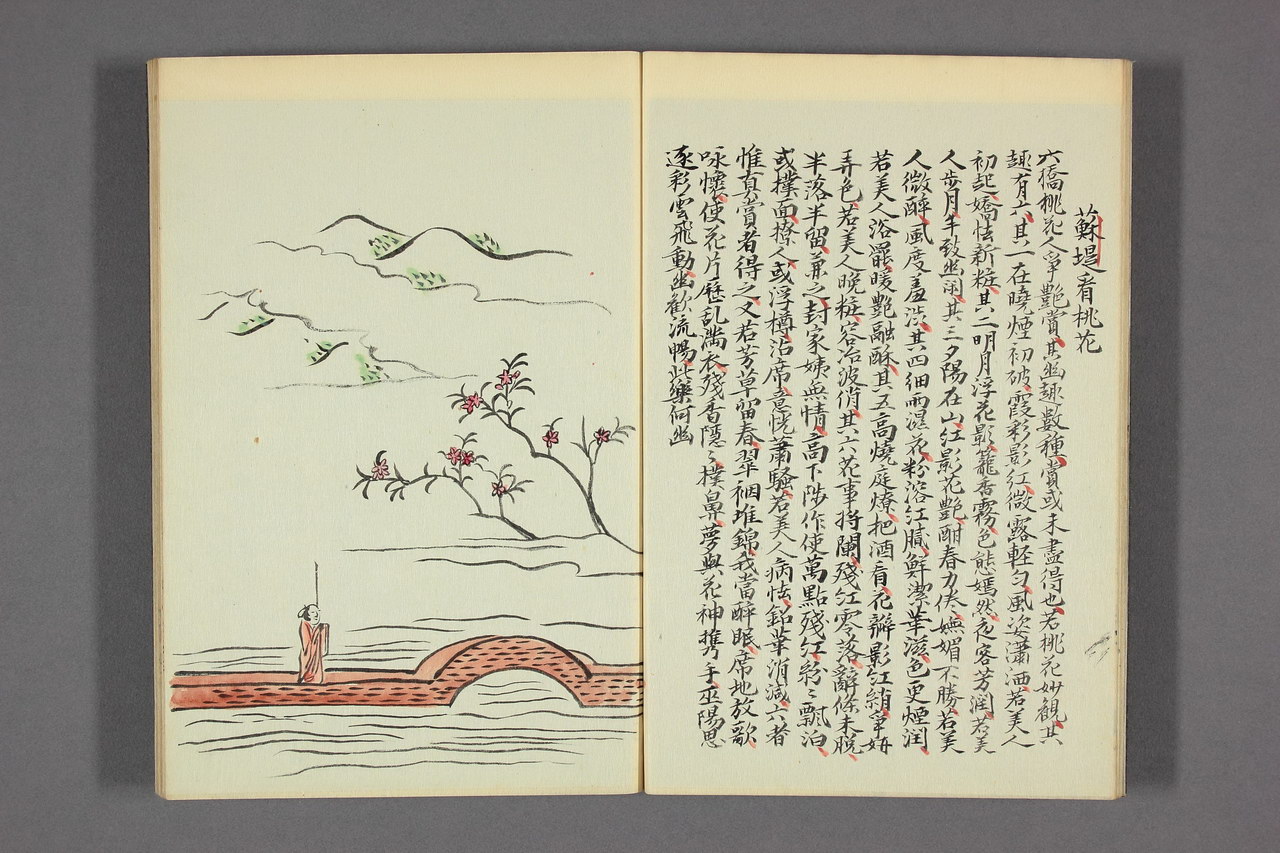 蘇堤看桃花
六橋桃花人爭艶賞其幽趣數種賞或未盡得也若桃花妙観其
趣有六其一在曉煙初破霞彩影紅微露軽匀風姿瀟洒若美人
初起嬌怯新粧其二明月浮花影籠香霧色態嫣然夜客芳潤若美
人歩月丰致幽閑其三夕陽在山紅影花艶酣春力倦嫵媚不勝若美
人微醉風度羞渋其四細雨濕花粉溶紅膩鮮潔華滋色更煙潤
若美人浴罷暖艶融酥其五高燒庭燎把酒看花瓣影紅綃爭妍
弄色若美人晩粧容冶波俏其六花事將闌殘紅零落辭條未脱
半落半留兼之封家姨無情高下陟作使萬點殘紅紛〻飄泊
或撲面撩人或浮樽沾席意恍蕭騷若美人病怯鉛華消減六者
惟真賞者得之又若芳草留春翠裀堆錦我當醉眠席地放歌
咏懷使花片歷乱満衣殘香隱〻撲鼻夢與花神携手巫陽思
逐彩雲飛動幽歡流暢此樂何幽